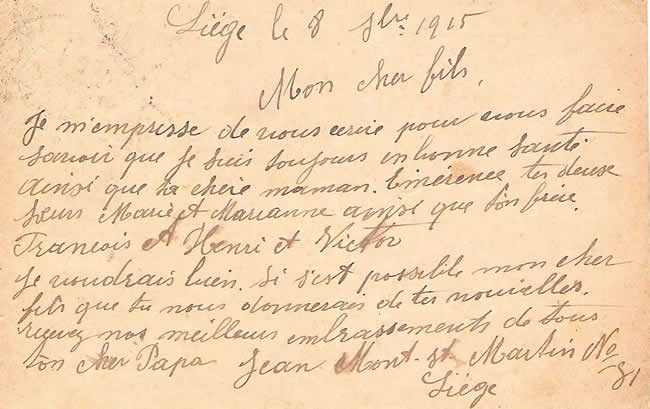 Liége le 8 bre 1915
Mon cher fils,
Je m'empresse de vous ecrire pour vous faire
savoir que je suis toujours en bonne santé
ainsi que ta chère maman. Emérence, tes deux
sœurs Marie et Marianne ainsi que ton frère.
Francois et Henri et Victor
Je voudrais bien. si s'est possible mon cher
fils que tu nous donnerais de tes nouvelles.
recevez nos meilleurs embrassements de tous
ton cher Papa Jean Mont-St Martin No
Liége 31